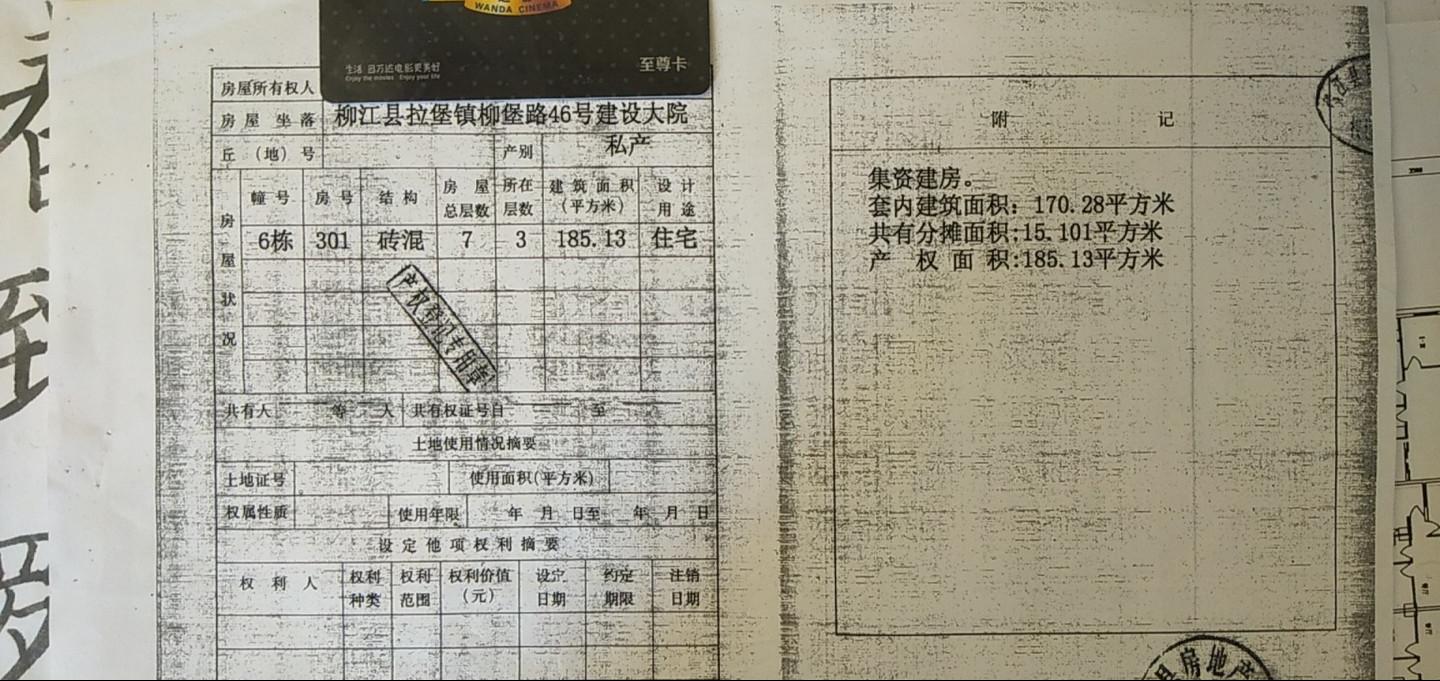 WANDA CINEMA
生活 因万达电影更美好
Enjoy the movies Enjoy your life
至尊卡
房屋所有权人
房屋坐落 柳江县拉堡镇柳堡路46号建设大院
丘（地）号 产别 私产
房屋状况
幢号 房号 结构 房屋总层数 所在层数 建筑面积（平方米） 设计用途
6栋 301 砖混 7 3 185.13 住宅
产权登记专用章
共有人 等 人 共有权证号自 至
土地使用情况摘要
土地证号 使用面积(平方米)
权属性质 使用年限 年 月 日至 年 月 日
设定他项权利摘要
权利人 权利种类 权利范围 权利价值（元） 设定日期 约定期限 注销日期
附记
集资建房。
套内建筑面积：170.28平方米
共有分摊面积:15.101平方米
产 权 面 积:185.13平方米
县房地产